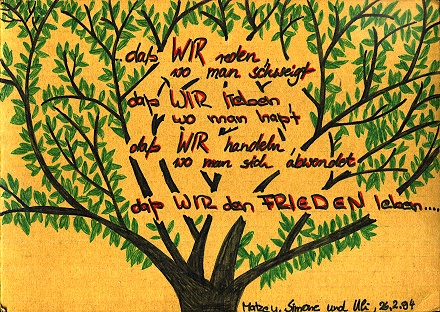 ...daß WIR reden
wo man schweigt
daß WIR lieben
wo man haßt
daß WIR handeln
wo man sich abwendet
daß WIR den FRIEDEN leben....
Matze u. Simone und Uli, 26.2.94